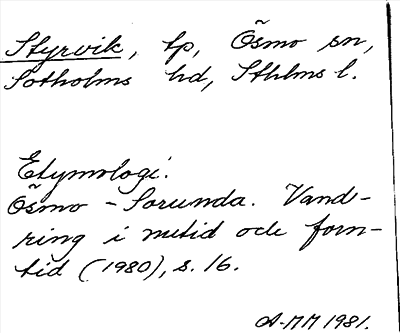 Styrvik, tp, Ösmo sn,
Sotholms hd, Sthlms l.
Etymologi:
Ösmo - Sorunda. Vand-
ring i nutid och forn-
tid (1980), s. 16.
A-MM 1981.